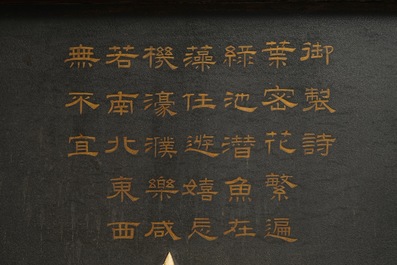 御製詩
葉密花繁遍
綠池潛魚在
藻任遊嬉忘
機濠濮樂咸
若南北東西
無不宜